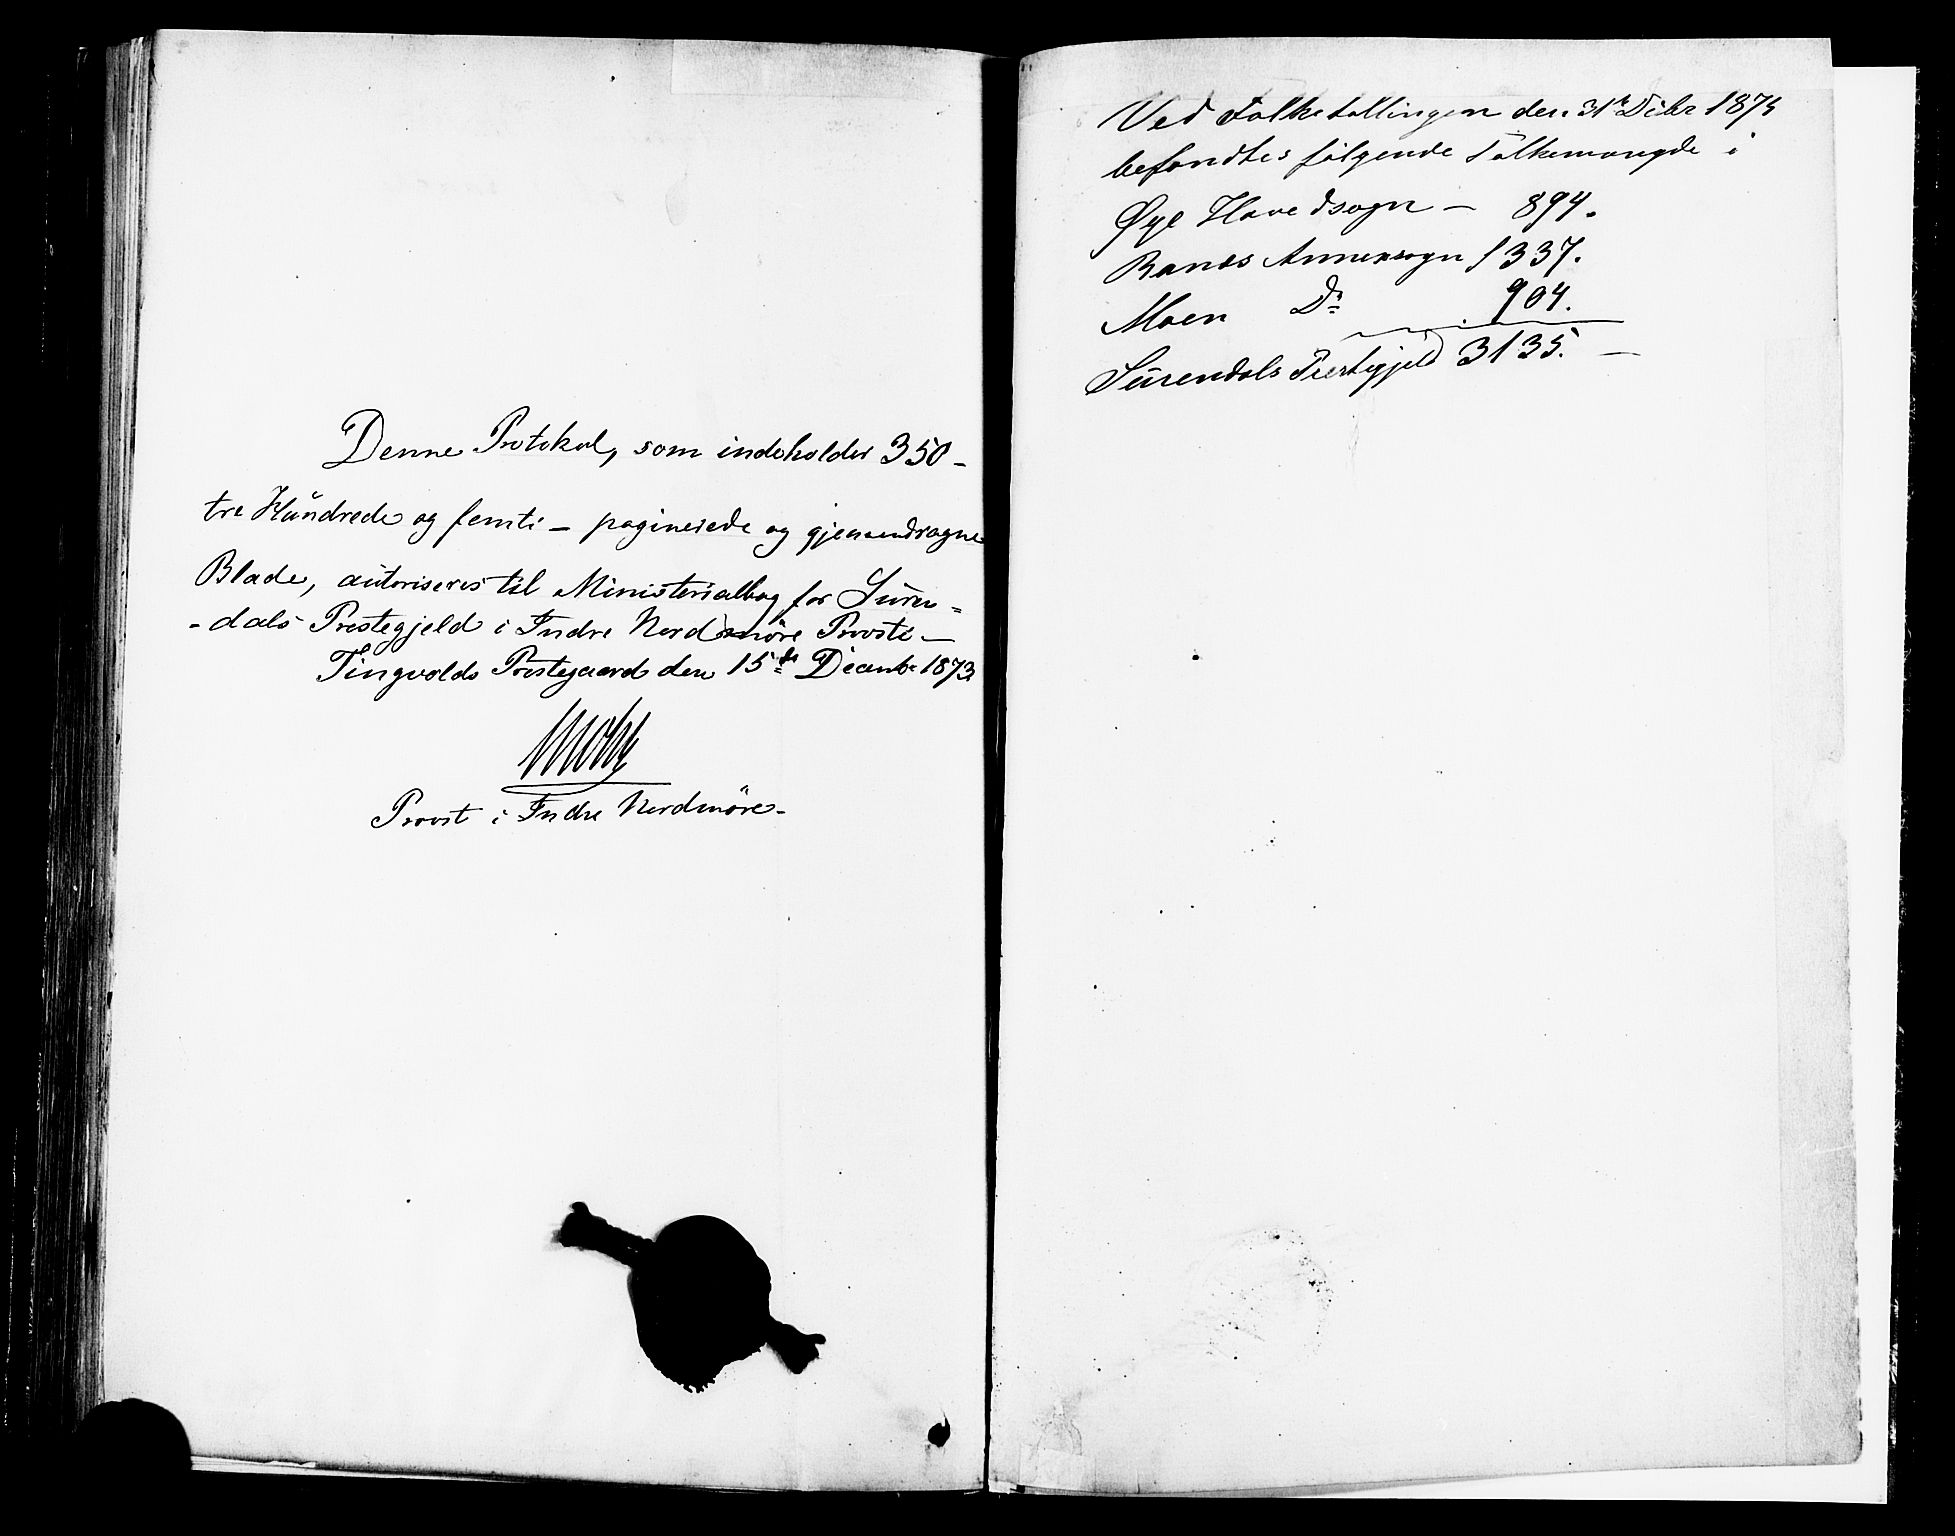 Denne Protokol, som indeholder 350 –
tre Hŭndrede og femti – paginerede og gjennemdragne
Blade, aŭtoriseres til Ministerialbog for Sŭren =
- dals Prestegjeld i Indre Nordmöre Provsti –
Tingvolds Prestegaard den 15de Decembr 1873
Provst i Indre Nordmöre –
Ved Folketællingen den 31te Decbr
befandtes følgende Folkemængde i
Øye Hovedsogn – 894.
Ranes Annexsogn 1337.
Moen Do 904.
Sŭrendals Prestegjeld 3135. –